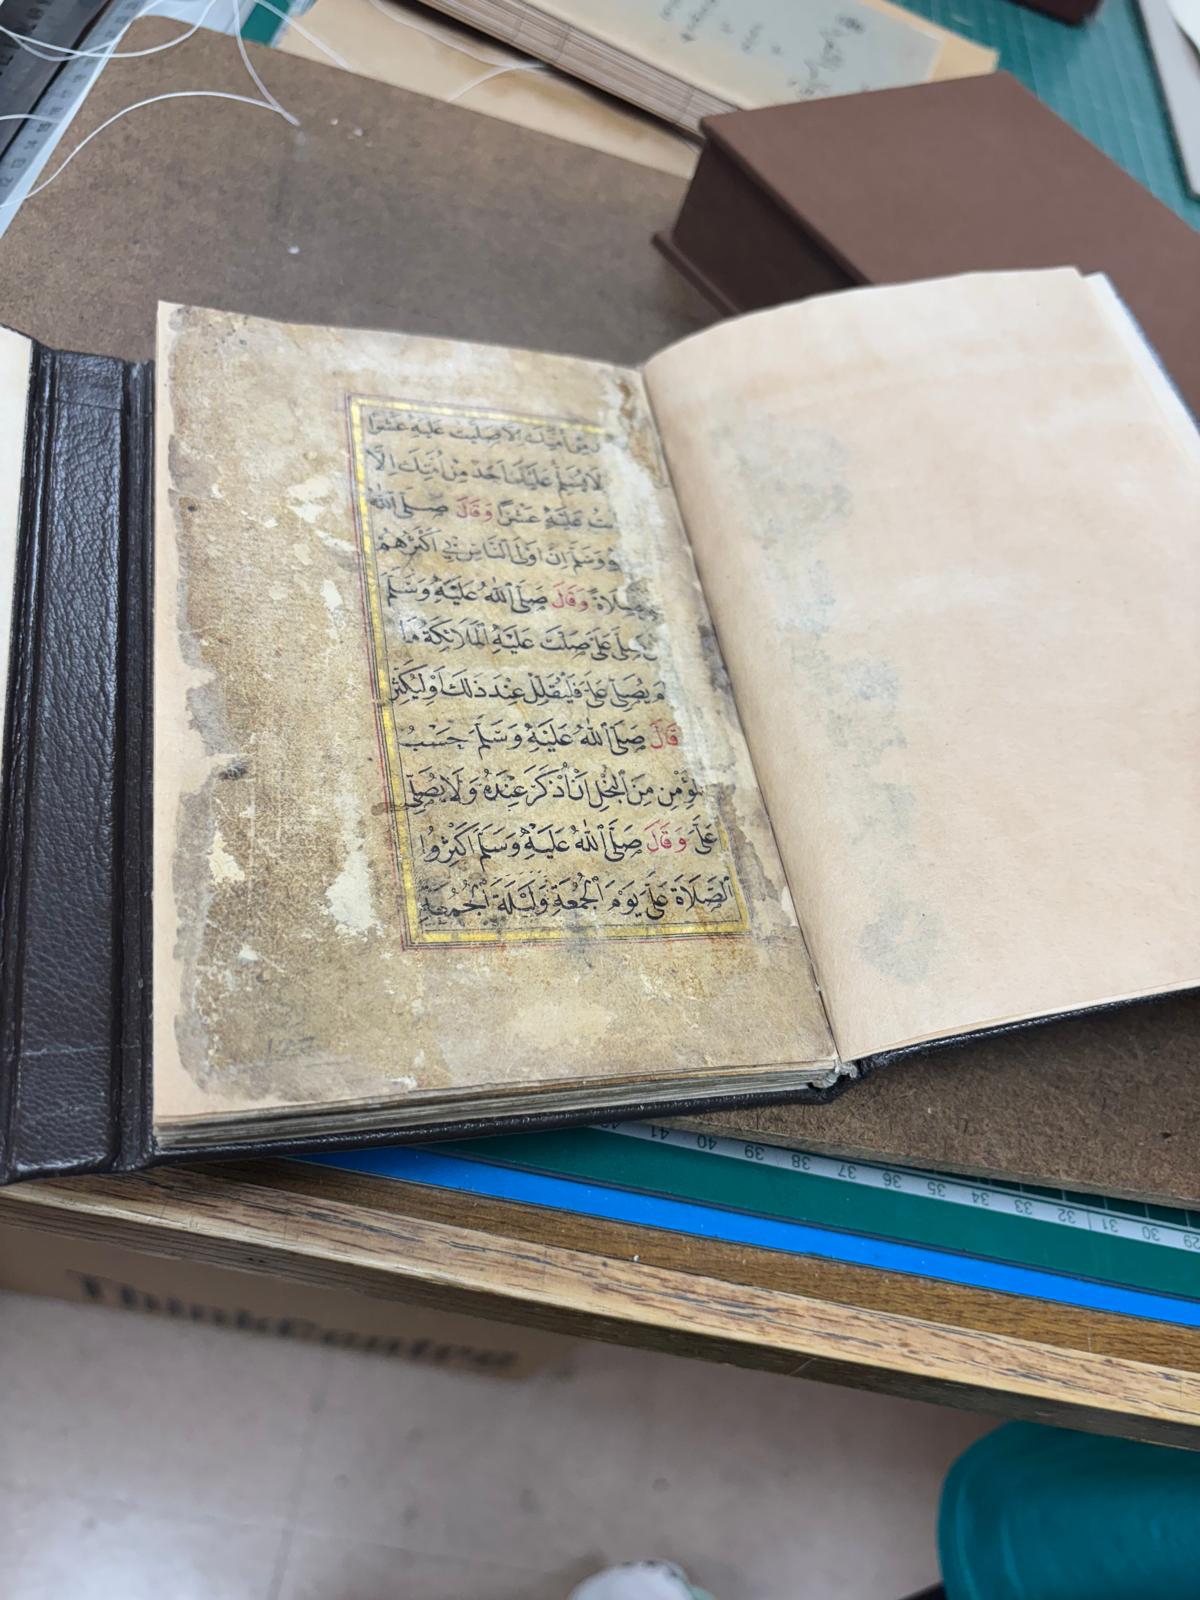 من أمتك إلا صليت عليه عشرا
لا يسلم عليك أحد من أمتك إلا
عليه عشرا وقال صلى الله
وسلم إن أولى الناس بي أكثرهم
صلاة وقال صلى الله عليه وسلم
صلى علي صلت عليه الملائكة ما
يصلي علي فليقلل عند ذلك أو ليكثر
قال صلى الله عليه وسلم حسب
المؤمن من البخل أن أذكر عنده ولا يصلي
علي وقال صلى الله عليه وسلم أكثروا
الصلاة علي يوم الجمعة وليلة الجمعة
127
41 40 39 38 37 36 35 34 33 32 31 30 29
ThinkCentre